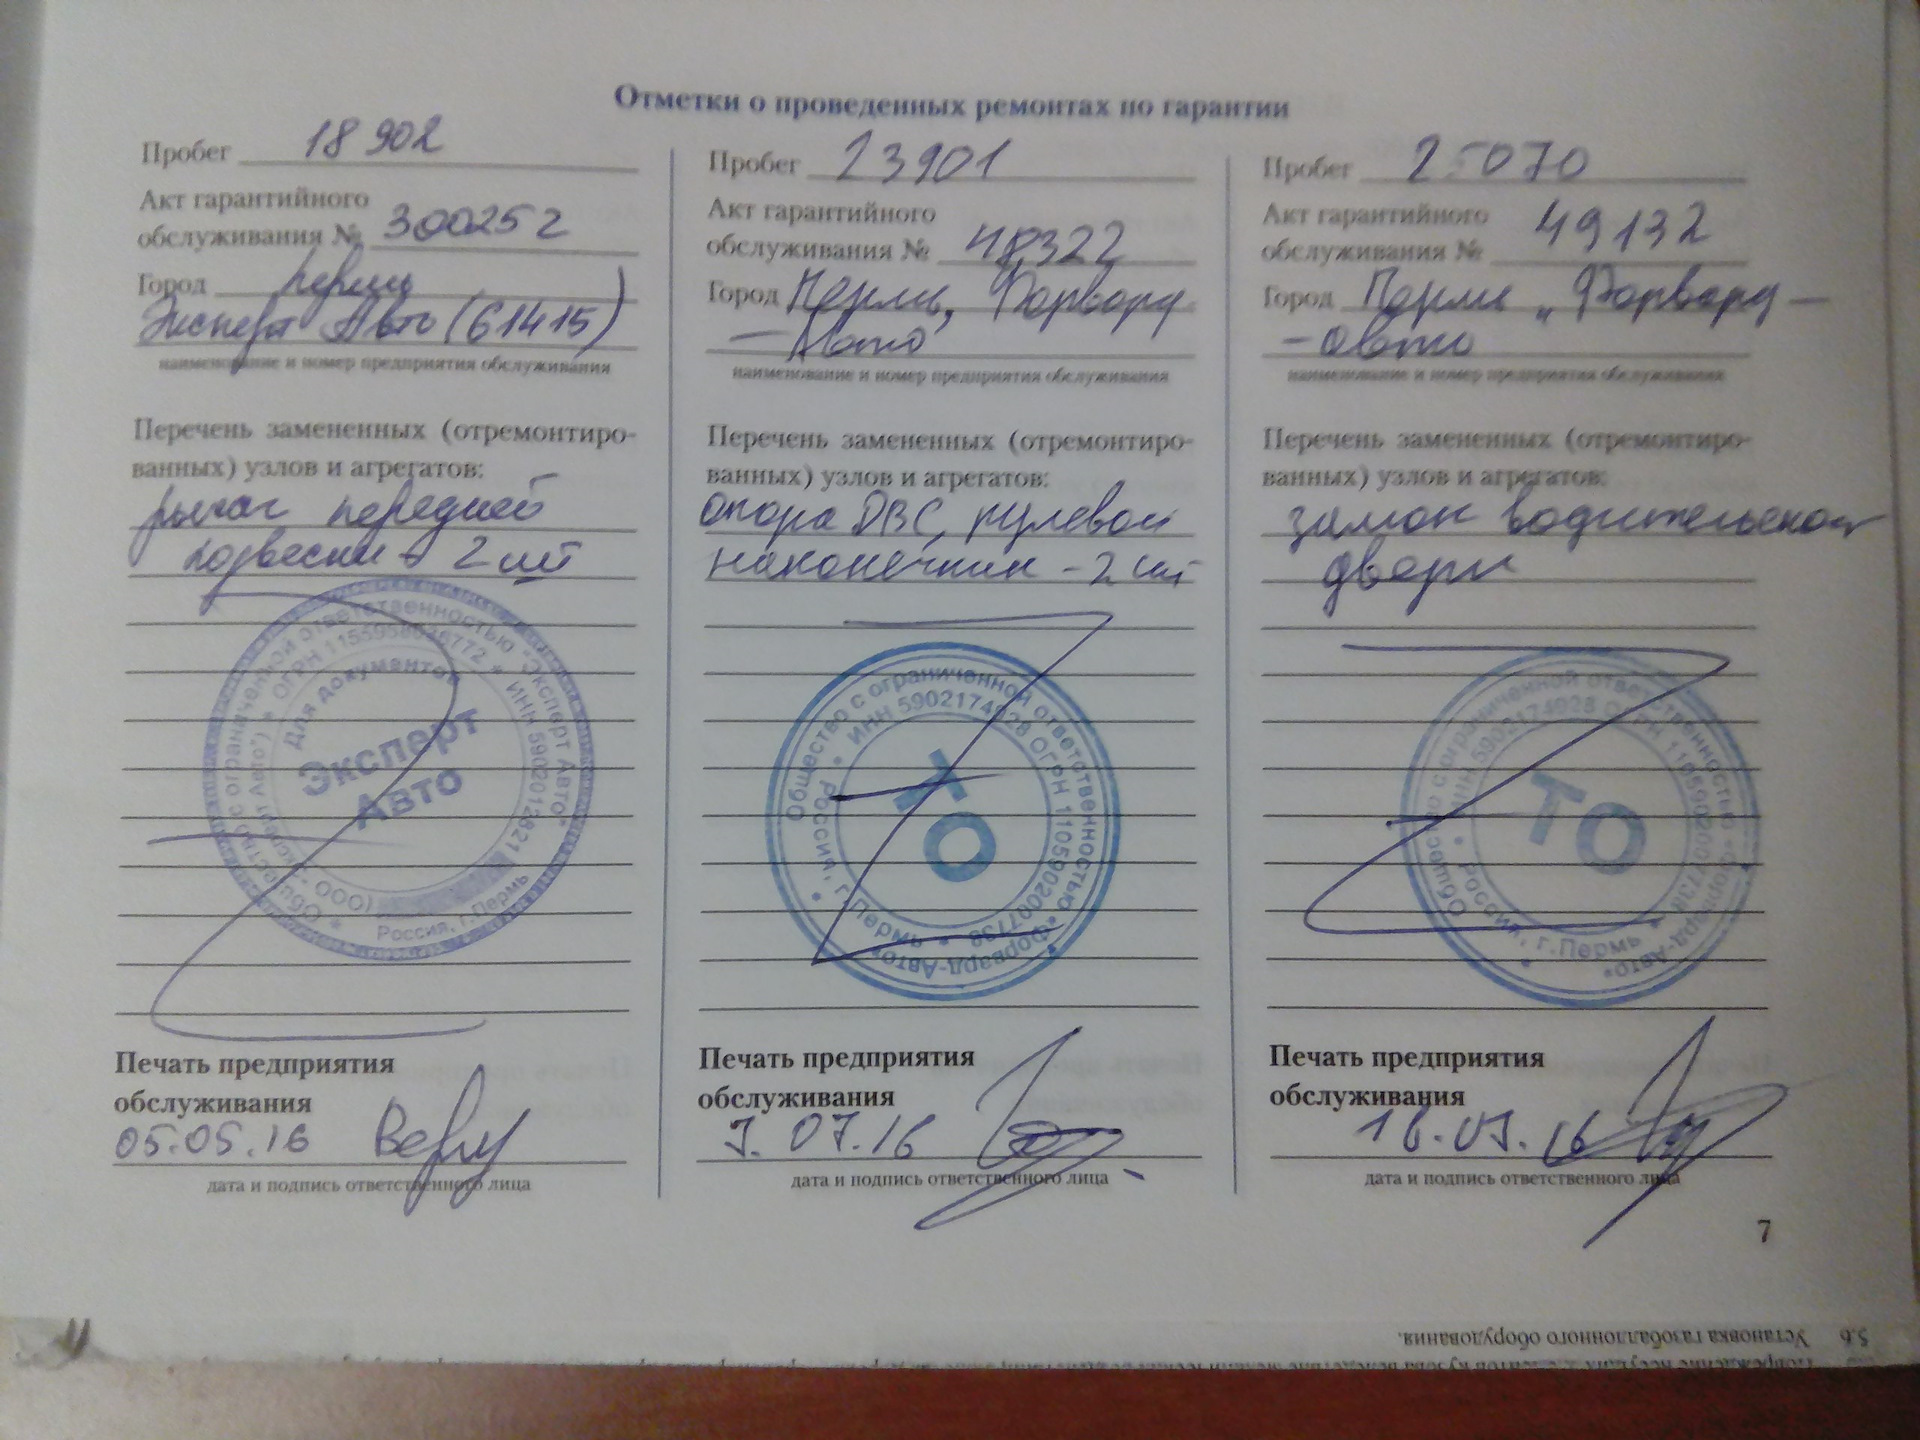 Отметки о проведенных ремонтах по гарантии
Пробег 18 902
Акт гарантийного
обслуживания № 300252
Город Пермь
Эксперт Авто (61415)
наименование и номер предприятия обслуживания
Перечень замененных (отремонтиро-
ванных) узлов и агрегатов:
рычаг передней
подвески - 2 шт
Общество с ограниченной ответственностью "Эксперт Авто"
ОГРН 1155958036772 * ИНН 5902012821
Для документов
Эксперт
Авто
Россия, г.Пермь
Печать предприятия
обслуживания
05.05.16
дата и подпись ответственного лица
Пробег 23901
Акт гарантийного
обслуживания № 48322
Город Пермь, Форвард
- Авто
наименование и номер предприятия обслуживания
Перечень замененных (отремонтиро-
ванных) узлов и агрегатов:
опора ДВС, рулевой
наконечник - 2 шт
Общество с ограниченной ответственностью «Форвард-Авто»
ИНН 5902174928 ОГРН 1105902007738
Россия, г.Пермь
ТО
Печать предприятия
обслуживания
7. 07.16
дата и подпись ответственного лица
Пробег 25070
Акт гарантийного
обслуживания № 49132
Город Перми „Форвард -
- авто
наименование и номер предприятия обслуживания
Перечень замененных (отремонтиро-
ванных) узлов и агрегатов:
замок водительской
двери
Общество с ограниченной ответственностью «Форвард-Авто»
ИНН 5902174928 ОГРН 1105902007738
Россия, г.Пермь
ТО
Печать предприятия
обслуживания
16.07.16
дата и подпись ответственного лица
7
5.6 Установка газобаллонного оборудования.